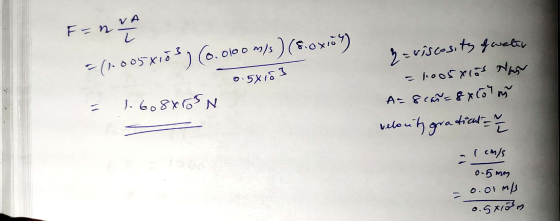 F = η vA/L
= (1.005×10⁻³) (0.0100 m/s) (8.0×10⁻⁴) / 0.5×10⁻³
= 1.608×10⁻⁵ N
η = viscosity of water
= 1.005×10⁻³ N/m²
A = 8 cm² = 8×10⁻⁴ m²
velocity gradient = v/L
= 1 cm/s / 0.5 mm
= 0.01 m/s / 0.5×10⁻³ m